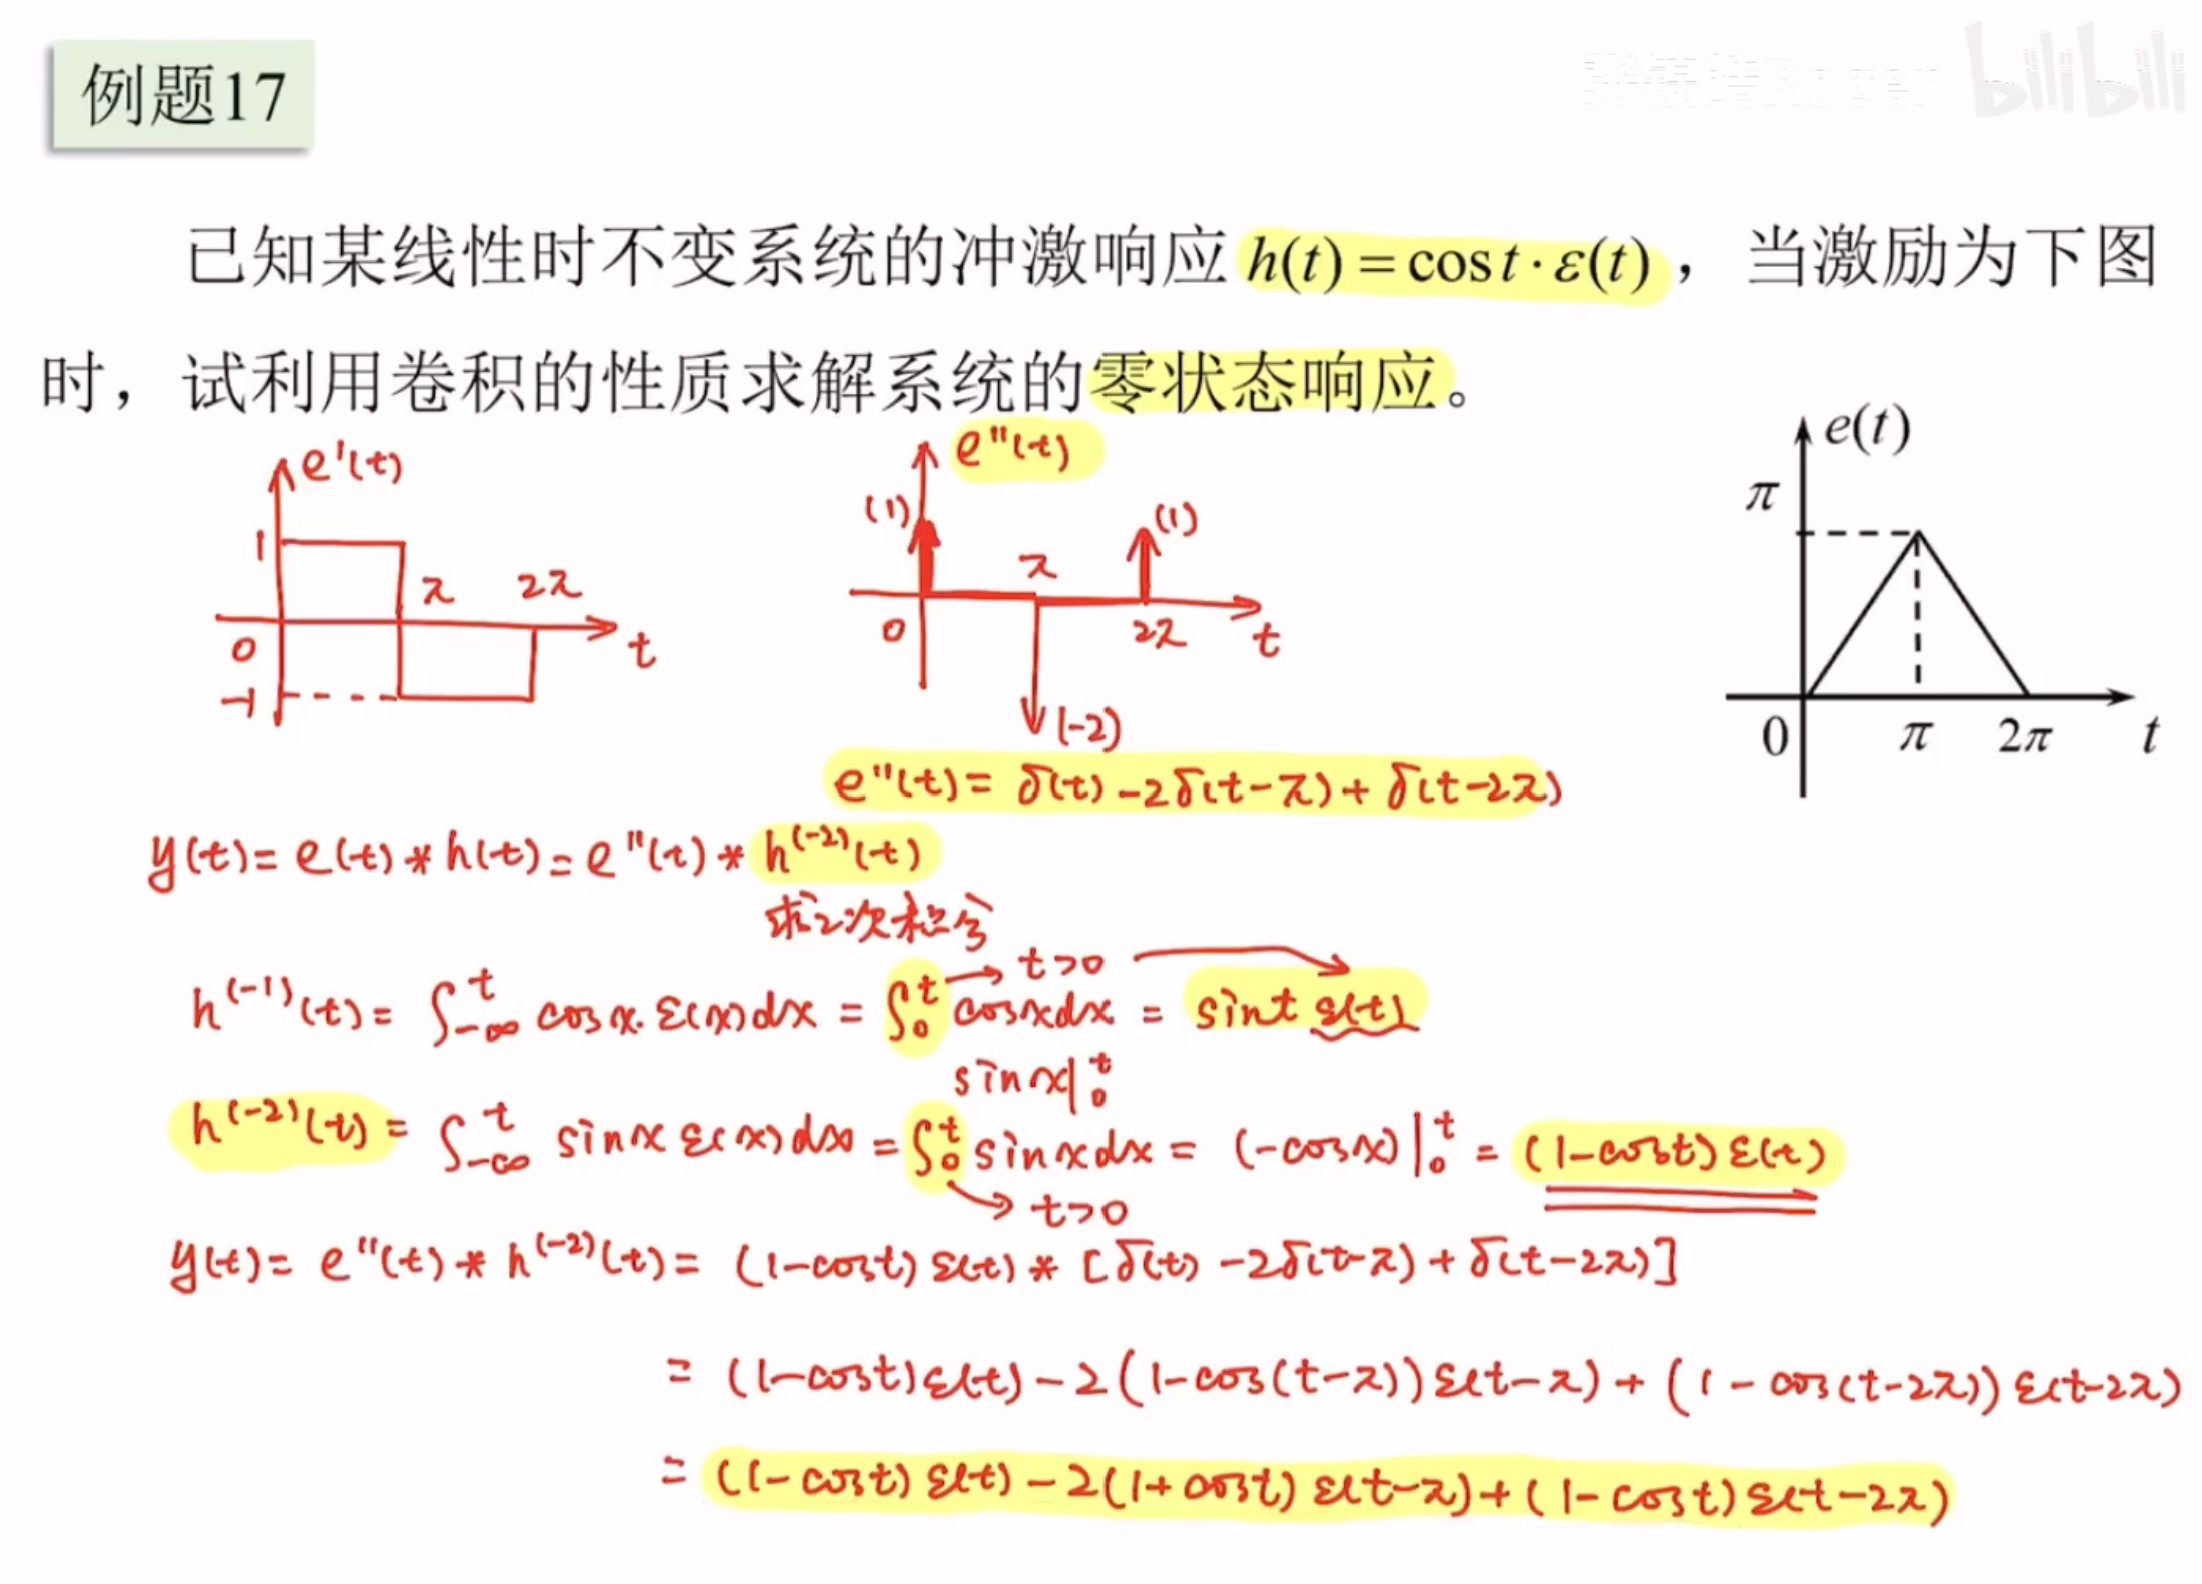 例题17
bilibili
已知某线性时不变系统的冲激响应 h(t) = cos t · ε(t) ，当激励为下图
时，试利用卷积的性质求解系统的零状态响应。
e'(t)
1
π
2π
0
t
-1
e''(t)
(1)
(1)
π
0
2π
t
(-2)
e(t)
π
0
π
2π
t
e''(t) = δ(t) - 2δ(t-π) + δ(t-2π)
y(t) = e(t) * h(t) = e''(t) * h^(-2)(t)
求2次积分
t>0
h^(-1)(t) = ∫_{-∞}^{t} cosx·ε(x)dx = ∫_0^t cosxdx = sint ε(t)
sinx|_0^t
h^(-2)(t) = ∫_{-∞}^{t} sinx ε(x)dx = ∫_0^t sinxdx = (-cosx)|_0^t = (1-cost)ε(t)
t>0
y(t) = e''(t) * h^(-2)(t) = (1-cost) ε(t) * [δ(t) - 2δ(t-π) + δ(t-2π)]
= (1-cost)ε(t) - 2(1-cos(t-π))ε(t-π) + (1-cos(t-2π))ε(t-2π)
= (1-cost) ε(t) - 2(1+cost) ε(t-π) + (1-cost) ε(t-2π)